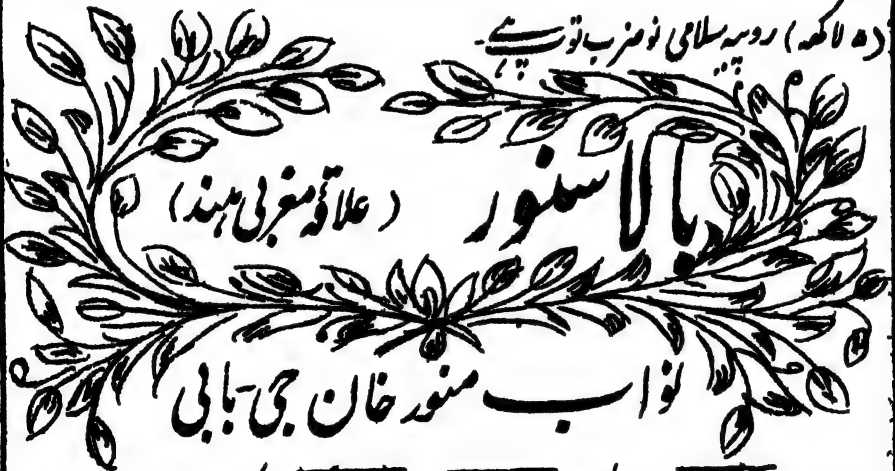 (۵ لاکھ) روپیہ سلامی نو ضرب توپ ہے۔
بالاسنور (علاقہ مغربی ہند)
نواب منور خان جی بابی